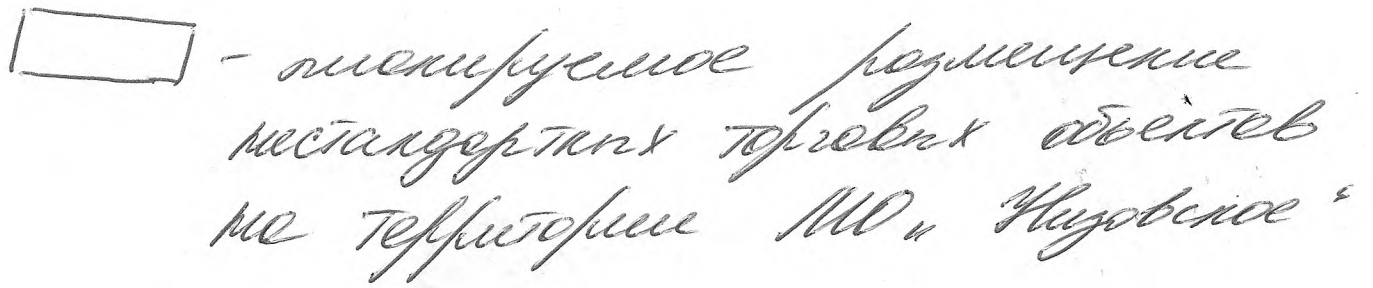 - планируемое размещение
нестандартных торговых объектов
на территории МО „Низовское“